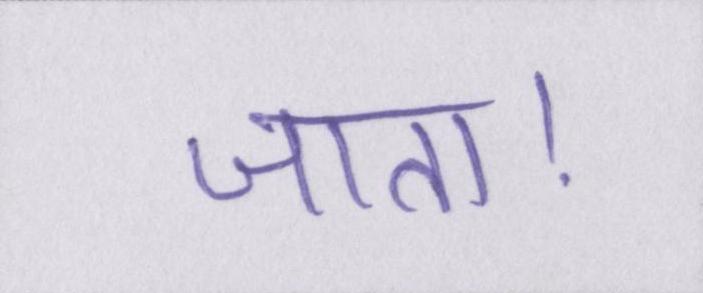 जाता!